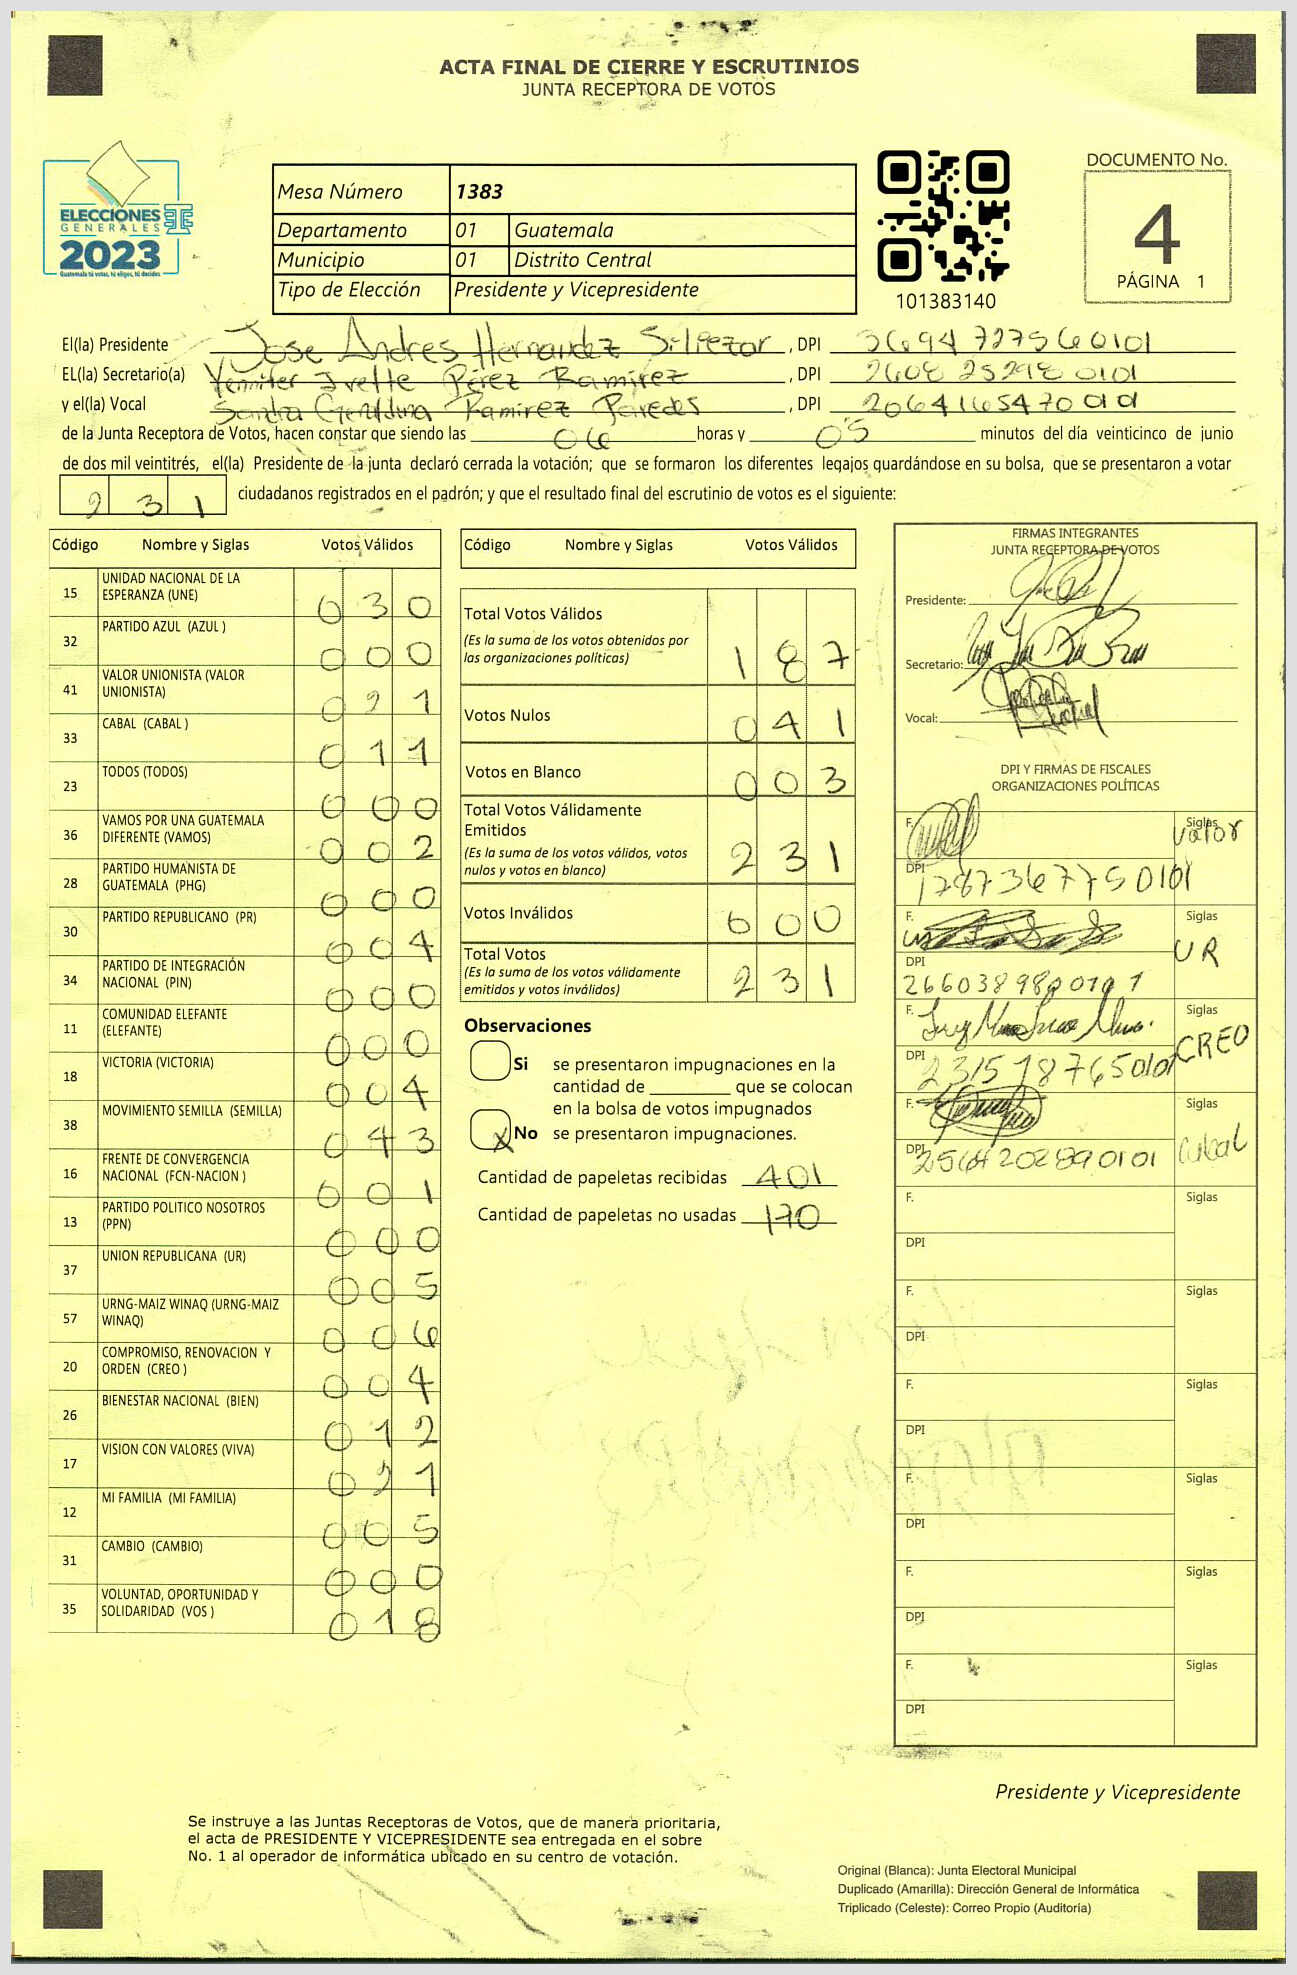 ACTA FINAL DE CIERRE Y ESCRUTINIOS
JUNTA RECEPTORA DE VOTOS
ELECCIONES
GENERALES
2023
Guatemala tú votas, tú eliges, tú decides
Mesa Número 1383
Departamento 01 Guatemala
Municipio 01 Distrito Central
Tipo de Elección Presidente y Vicepresidente
101383140
DOCUMENTO No.
4
PÁGINA 1
El(la) Presidente Jose Andres Hernandez Siliezar, DPI 3694727560101
EL(la) Secretario(a) Yennifer Ivette Pérez Ramirez, DPI 2608252980101
y el(la) Vocal Sandra Geraldina Ramirez Paredes, DPI 2064165470101
de la Junta Receptora de Votos, hacen constar que siendo las 06 horas y 05 minutos del día veinticinco de junio
de dos mil veintitrés, el(la) Presidente de la junta declaró cerrada la votación; que se formaron los diferentes legajos guardándose en su bolsa, que se presentaron a votar
231 ciudadanos registrados en el padrón; y que el resultado final del escrutinio de votos es el siguiente:
Código Nombre y Siglas Votos Válidos
15 UNIDAD NACIONAL DE LA
ESPERANZA (UNE) 030
32 PARTIDO AZUL (AZUL ) 000
41 VALOR UNIONISTA (VALOR
UNIONISTA) 021
33 CABAL (CABAL ) 011
23 TODOS (TODOS) 000
36 VAMOS POR UNA GUATEMALA
DIFERENTE (VAMOS) 002
28 PARTIDO HUMANISTA DE
GUATEMALA (PHG) 000
30 PARTIDO REPUBLICANO (PR) 004
34 PARTIDO DE INTEGRACIÓN
NACIONAL (PIN) 000
11 COMUNIDAD ELEFANTE
(ELEFANTE) 000
18 VICTORIA (VICTORIA) 004
38 MOVIMIENTO SEMILLA (SEMILLA) 043
16 FRENTE DE CONVERGENCIA
NACIONAL (FCN-NACION ) 001
13 PARTIDO POLITICO NOSOTROS
(PPN) 000
37 UNION REPUBLICANA (UR) 005
57 URNG-MAIZ WINAQ (URNG-MAIZ
WINAQ) 006
20 COMPROMISO, RENOVACION Y
ORDEN (CREO ) 004
26 BIENESTAR NACIONAL (BIEN) 012
17 VISION CON VALORES (VIVA) 021
12 MI FAMILIA (MI FAMILIA) 005
31 CAMBIO (CAMBIO) 000
35 VOLUNTAD, OPORTUNIDAD Y
SOLIDARIDAD (VOS ) 018
Código Nombre y Siglas Votos Válidos
Total Votos Válidos
(Es la suma de los votos obtenidos por
las organizaciones políticas) 187
Votos Nulos 041
Votos en Blanco 003
Total Votos Válidamente
Emitidos
(Es la suma de los votos válidos, votos
nulos y votos en blanco) 231
Votos Inválidos 000
Total Votos
(Es la suma de los votos válidamente
emitidos y votos inválidos) 231
Observaciones
Si se presentaron impugnaciones en la
cantidad de ________ que se colocan
en la bolsa de votos impugnados
X No se presentaron impugnaciones.
Cantidad de papeletas recibidas 401
Cantidad de papeletas no usadas 170
FIRMAS INTEGRANTES
JUNTA RECEPTORA DE VOTOS
Presidente:
Secretario:
Vocal:
DPI Y FIRMAS DE FISCALES
ORGANIZACIONES POLÍTICAS
F. Siglas
Valor
DPI 1787367750101
F. Siglas
UR
DPI
2660389800101
F. Siglas
CREO
DPI 2315187650101
F. Siglas
Cabal
DPI 2564202890101
F. Siglas
DPI
F. Siglas
DPI
F. Siglas
DPI
F. Siglas
DPI
F. Siglas
DPI
F. Siglas
DPI
Presidente y Vicepresidente
Se instruye a las Juntas Receptoras de Votos, que de manera prioritaria,
el acta de PRESIDENTE Y VICEPRESIDENTE sea entregada en el sobre
No. 1 al operador de informática ubicado en su centro de votación.
Original (Blanca): Junta Electoral Municipal
Duplicado (Amarilla): Dirección General de Informática
Triplicado (Celeste): Correo Propio (Auditoría)